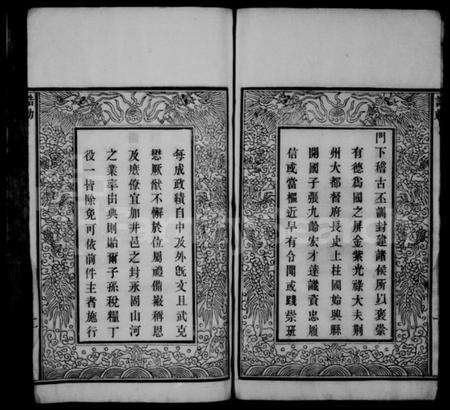 門下稽古丕訓封建諸侯所以褒崇
有德為國之屏金紫光祿大夫荆
州大都督府長史上柱國始興縣
開國子張九齡宏才達識資忠履
信或當樞近早有令聞或踐崇班
每成政績自中及外旣文且武克
懋厥猷不懈於位屬禮備嚴稱恩
及庶僚宜加井邑之封永固山河
之業率由典則貽爾子孫稅糧丁
役一皆除免可依前件主者施行
誥勅